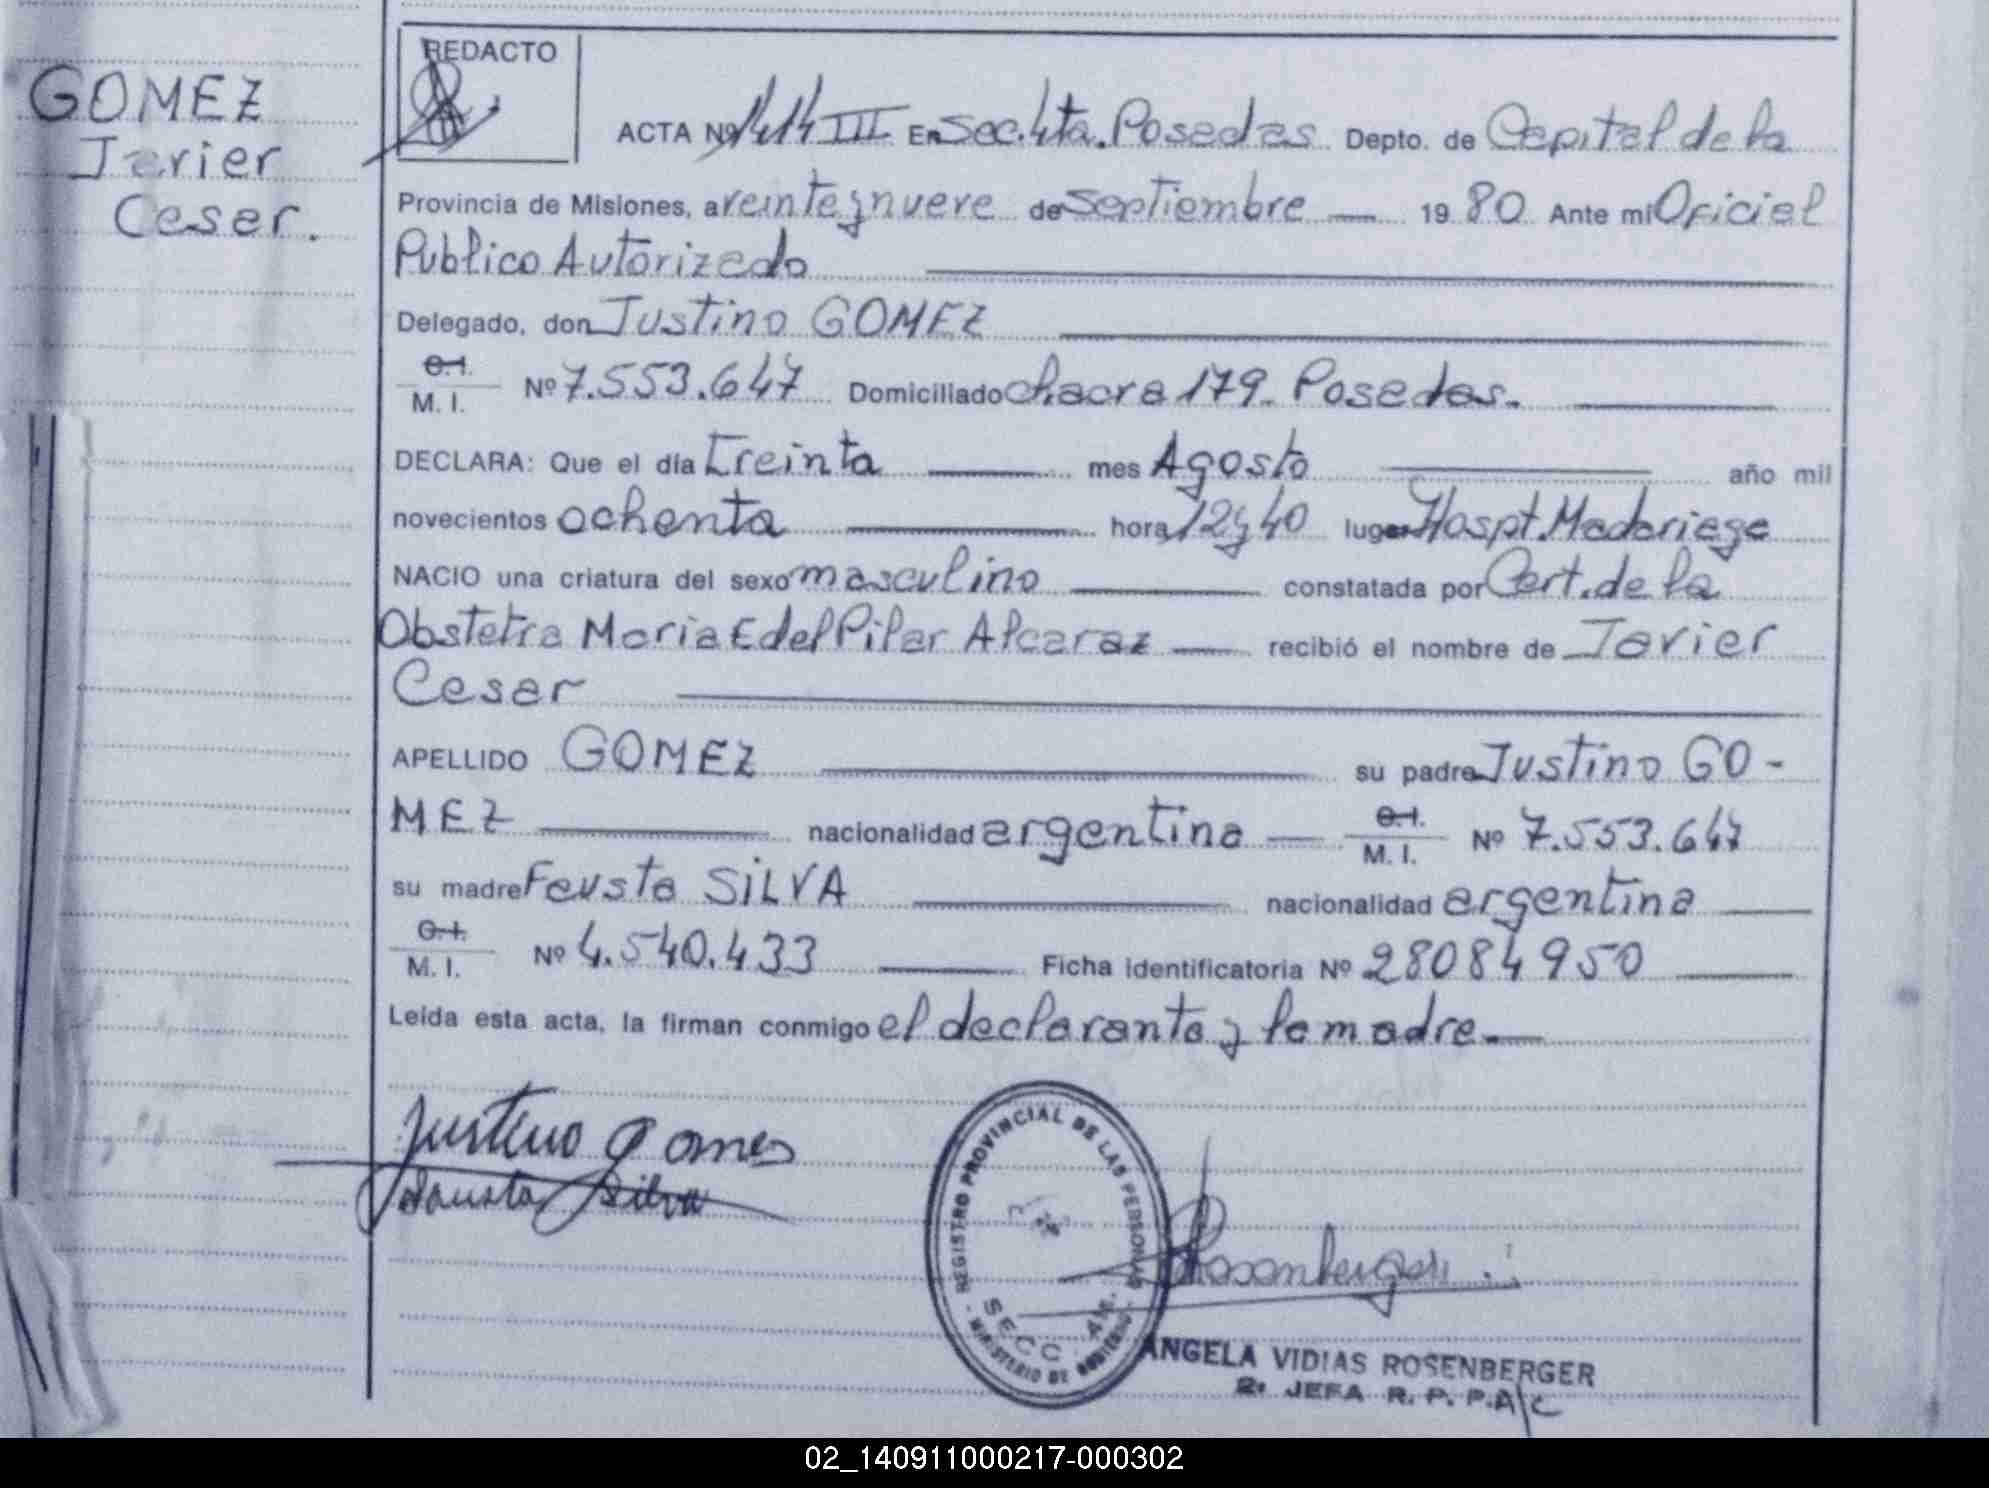 GOMEZ
Javier
Cesar.
REDACTO
ACTA Nº 1414 III En Sec. 4ta. Posadas Depto. de Capital de la
Provincia de Misiones, a veinte y nueve de Septiembre — 19 80 Ante mi Oficial
Publico Autorizado
Delegado, don Justino GOMEZ
C.I.
M. I. Nº 7.553.647 Domiciliado chacra 179- Posadas.
DECLARA: Que el día treinta mes Agosto año mil
novecientos ochenta hora 12 y 40 lugar Hospt. Madariaga
NACIO una criatura del sexo masculino constatada por Cert. de la
Obstetra Maria E del Pilar Alcaraz recibió el nombre de Javier
Cesar
APELLIDO GOMEZ su padre Justino GO-
MEZ nacionalidad argentina C.I.
M. I. Nº 7.553.647
su madre Fausta SILVA nacionalidad argentina
C.I.
M. I. Nº 4.540.433 Ficha Identificatoria Nº 28084950
Leida esta acta, la firman conmigo el declarante y la madre.
Justino Gomes
Fausta Silva
REGISTRO PROVINCIAL DE LAS PERSONAS
SECC. 4ta.
MINISTERIO DE GOBIERNO
Rosenberger
ANGELA VIDIAS ROSENBERGER
2º JEFA R. P. P. A/C
02_140911000217-000302